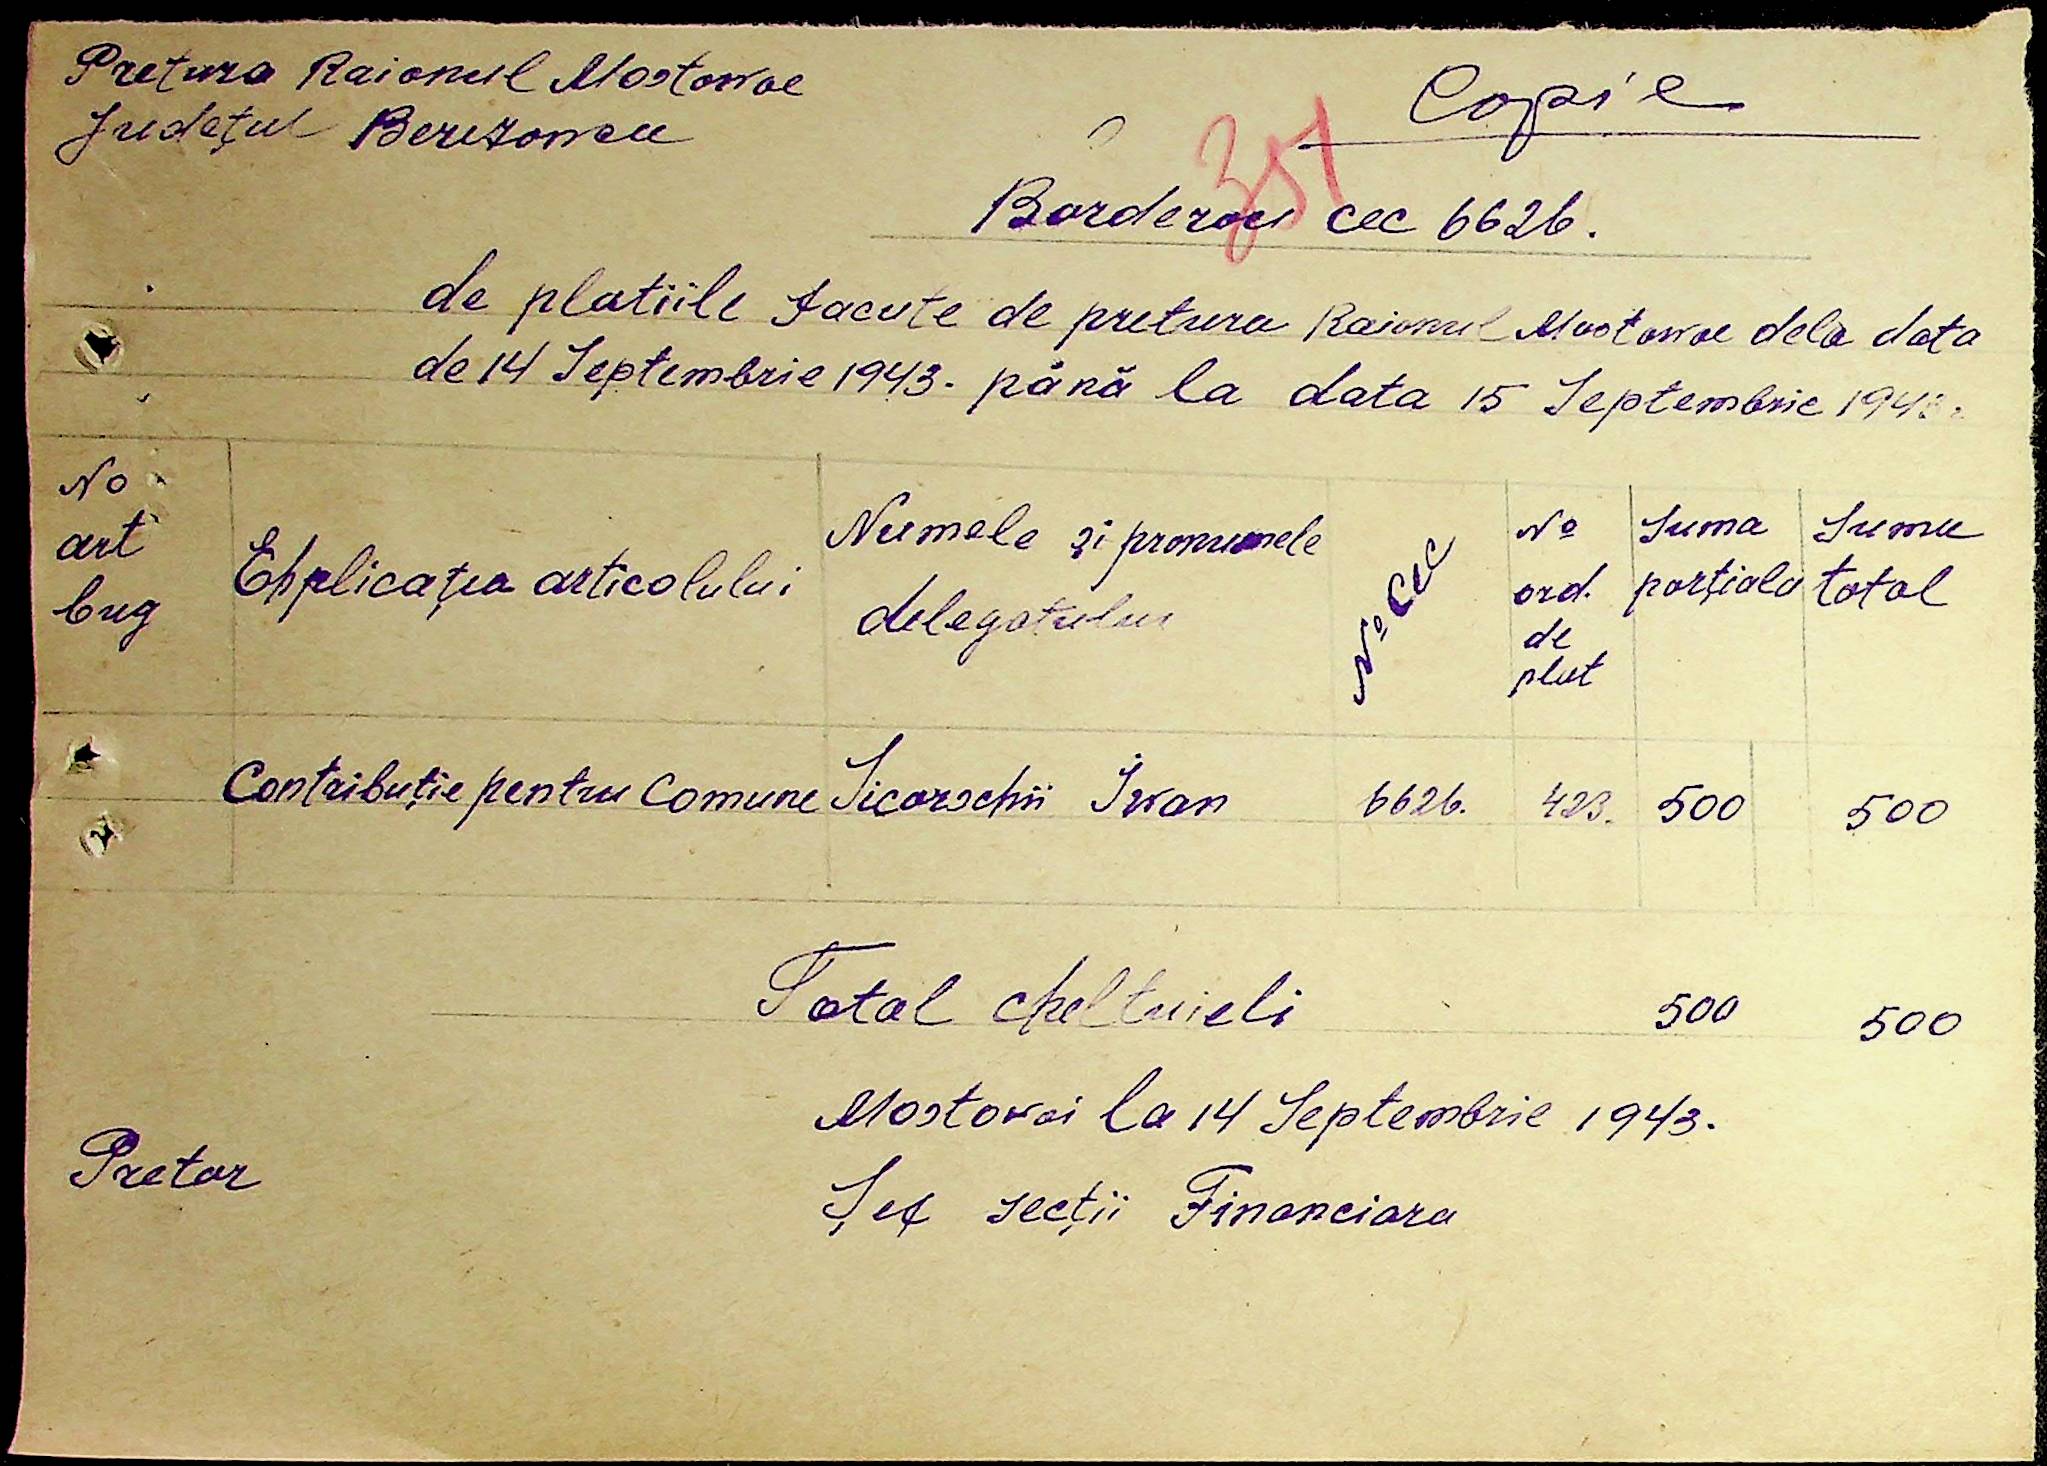 Pretura Raionul Mostowoe
Județul Berezoweu
Copie
351
Borderou cec 6626.
de platiile facute de pretura Raionul Mostowoe dela data
de 14 Septembrie 1943. până la data 15 Septembrie 1943.
No art bug
Explicația articolului
Numele și pronumele delegatului
No Cec
No ord. de plat
Suma parțiala
Suma total
Contribuție pentru Comune Sicorschii Iwan 6626. 423. 500 500
Total cheltuieli 500 500
Mostowoi la 14 Septembrie 1943.
Pretor
Șef secții Financiara